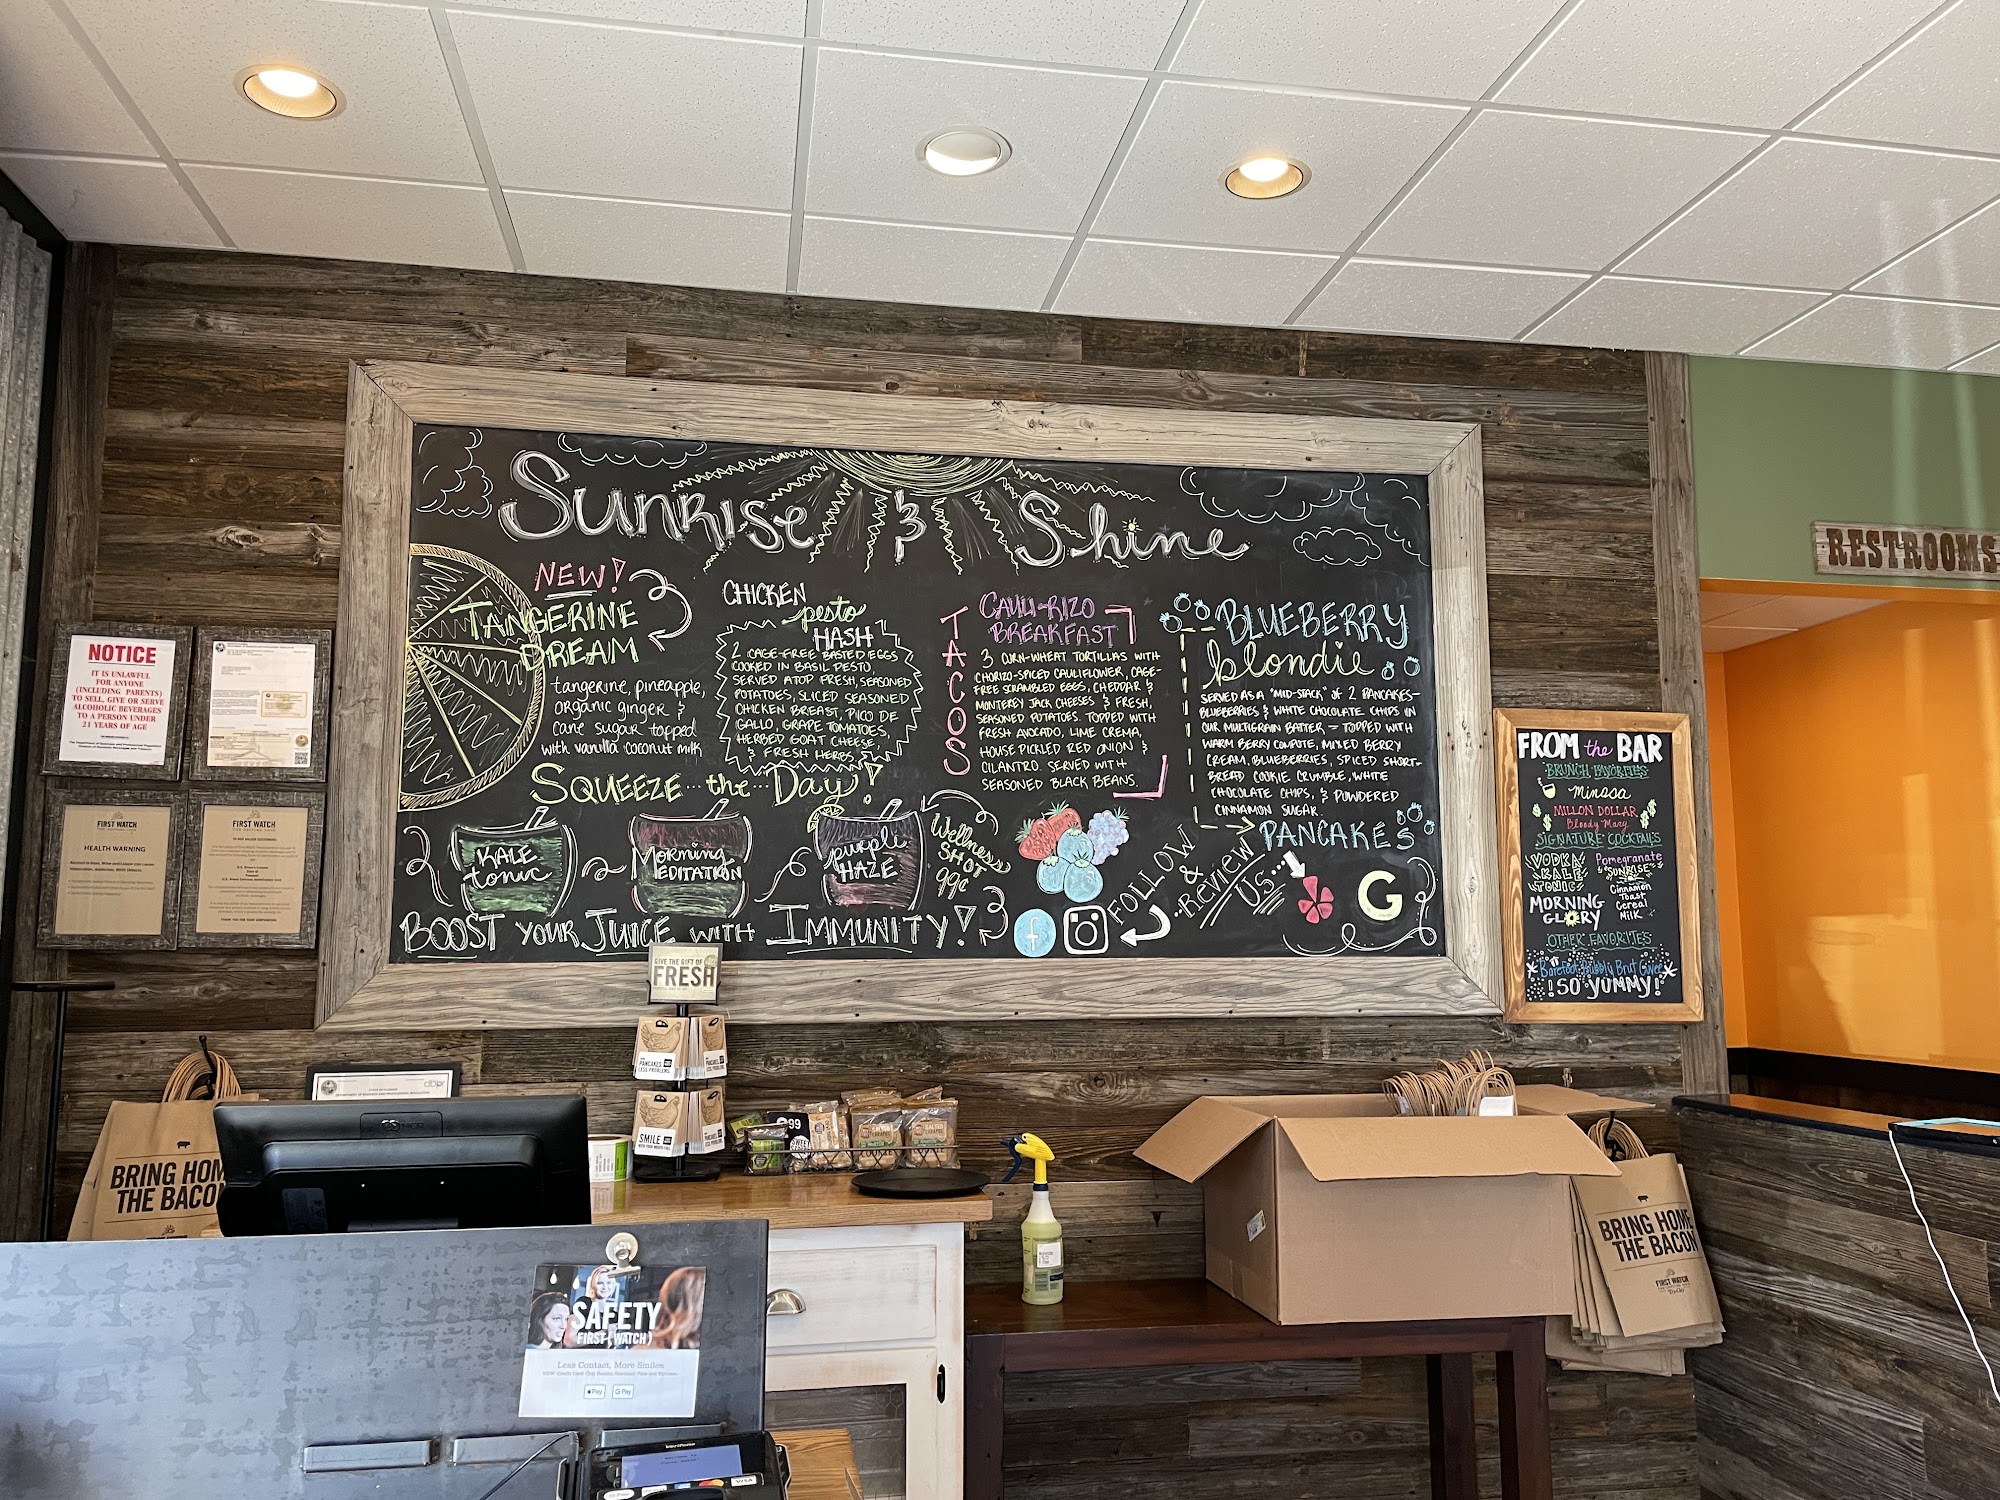 Sunrise & Shine
NEW!
TANGERINE
DREAM
tangerine, pineapple,
organic ginger &
cane sugar topped
with vanilla coconut milk
CHICKEN
pesto
HASH
2 CAGE-FREE BASTED EGGS
COOKED IN BASIL PESTO
SERVED ATOP FRESH, SEASONED
POTATOES, SLICED SEASONED
CHICKEN BREAST, PICO DE
GALLO, GRAPE TOMATOES,
HERBED GOAT CHEESE,
& FRESH HERBS
TACOS
CAULI-RIZO
BREAKFAST
3 CORN-WHEAT TORTILLAS WITH
CHORIZO-SPICED CAULIFLOWER, CAGE-
FREE SCRAMBLED EGGS, CHEDDAR &
MONTEREY JACK CHEESES & FRESH,
SEASONED POTATOES. TOPPED WITH
FRESH AVOCADO, LIME CREMA,
HOUSE PICKLED RED ONION &
CILANTRO. SERVED WITH
SEASONED BLACK BEANS.
BLUEBERRY
blondie
SERVED AS A "MID-STACK" OF 2 PANCAKES-
BLUEBERRIES & WHITE CHOCOLATE CHIPS IN
OUR MULTIGRAIN BATTER - TOPPED WITH
WARM BERRY COMPOTE, MIXED BERRY
CREAM, BLUEBERRIES, SPICED SHORT-
BREAD COOKIE CRUMBLE, WHITE
CHOCOLATE CHIPS, & POWDERED
CINNAMON SUGAR
PANCAKES
SQUEEZE...the...Day!
KALE
tonic
Morning
MEDITATION
purple
HAZE
Wellness
SHOT
99¢
BOOST YOUR JUICE WITH IMMUNITY!
FOLLOW
&
REVIEW
US...
f
G
FROM the BAR
BRUNCH FAVORITES
Mimosa
MILLION DOLLAR
Bloody Mary
SIGNATURE COCKTAILS
VODKA
KALE
TONIC
Pomegranate
SUNRISE
MORNING
GLORY
Cinnamon
Toast
Cereal
Milk
OTHER FAVORITES
Barefoot Bubbly Brut Cuvee
!SO YUMMY!
RESTROOMS
NOTICE
IT IS UNLAWFUL
FOR ANYONE
(INCLUDING PARENTS)
TO SELL, GIVE OR SERVE
ALCOHOLIC BEVERAGES
TO A PERSON UNDER
21 YEARS OF AGE
FIRST WATCH
HEALTH WARNING
FIRST WATCH
GIVE THE GIFT OF
FRESH
PANCAKES
LESS PROBLEMS.
SMILE
dbpr
NCR
BRING HOME
THE BACON
SALTED
COOKIE
BRING HOME
THE BACON
FIRST WATCH
SAFETY
FIRST (WATCH)
Less Contact, More Smiles
Pay
G Pay
VISA